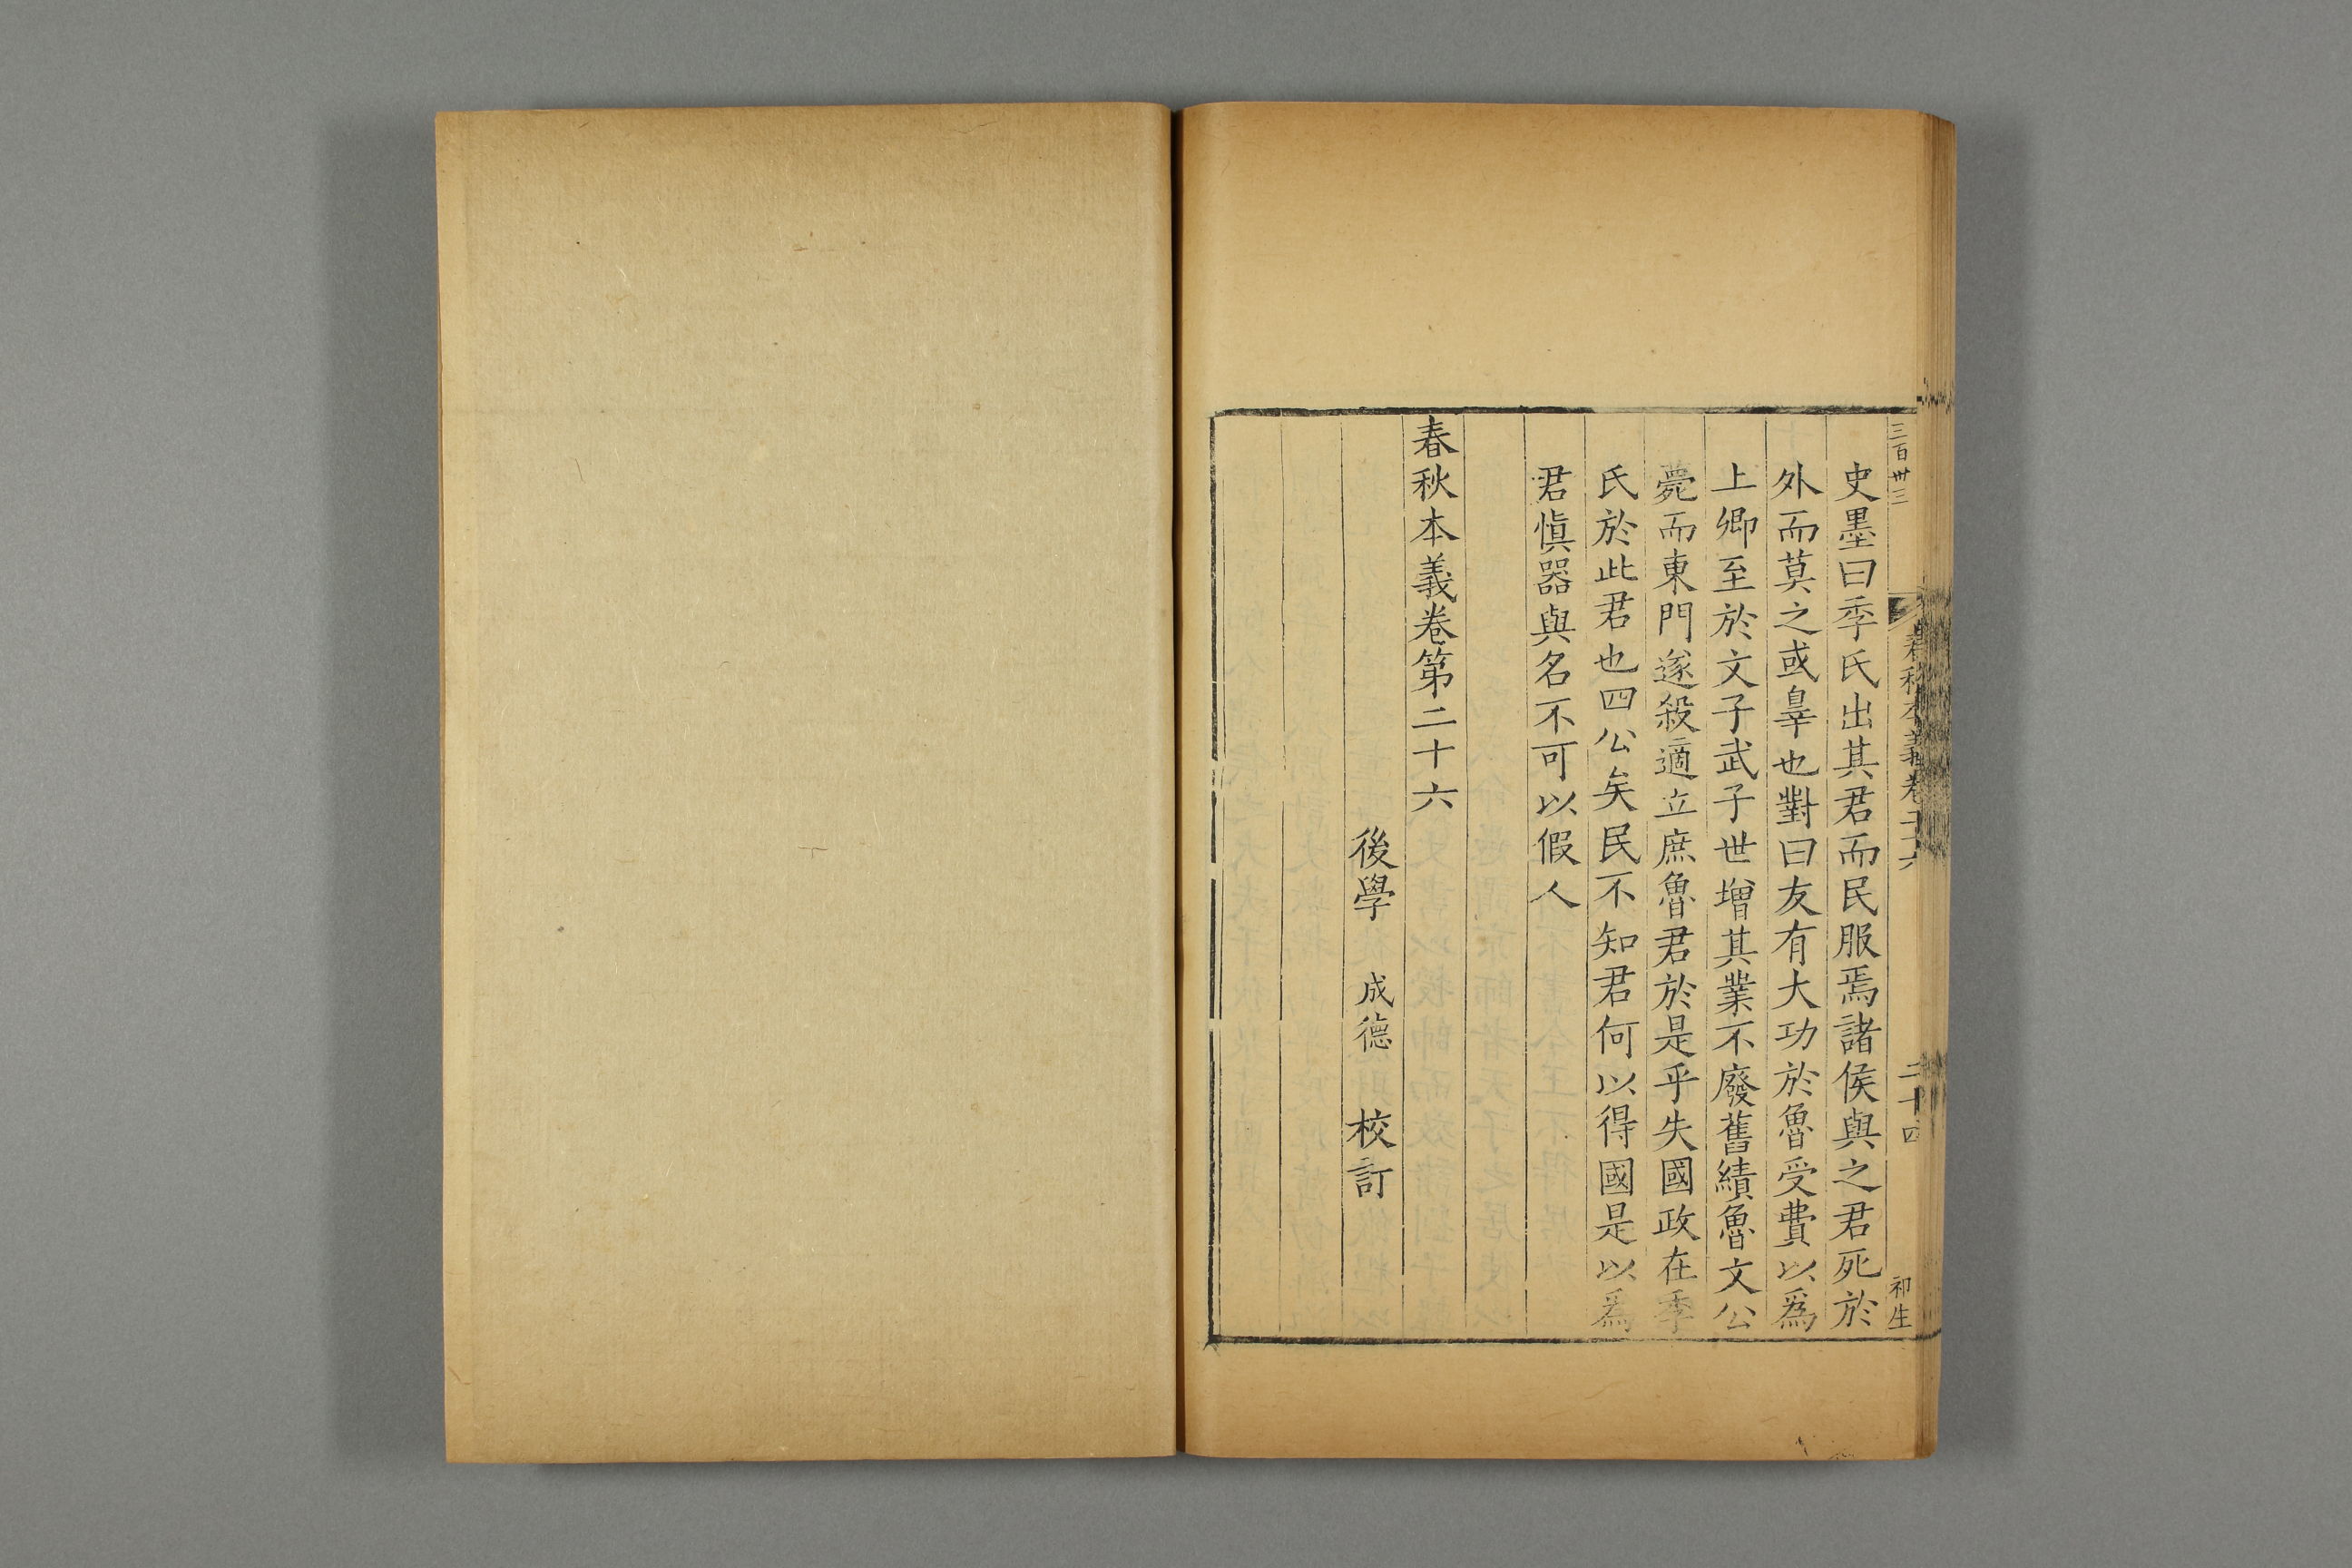 三百卅三
春秋本義卷二十六
二十四
初生
史墨曰季氏出其君而民服焉諸侯與之君死於
外而莫之或辠也對曰友有大功於魯受費以爲
上卿至於文子武子世增其業不廢舊績魯文公
薨而東門遂殺適立庶魯君於是乎失國政在季
氏於此君也四公矣民不知君何以得國是以爲
君慎器與名不可以假人
春秋本義卷第二十六
後學 成德 校訂